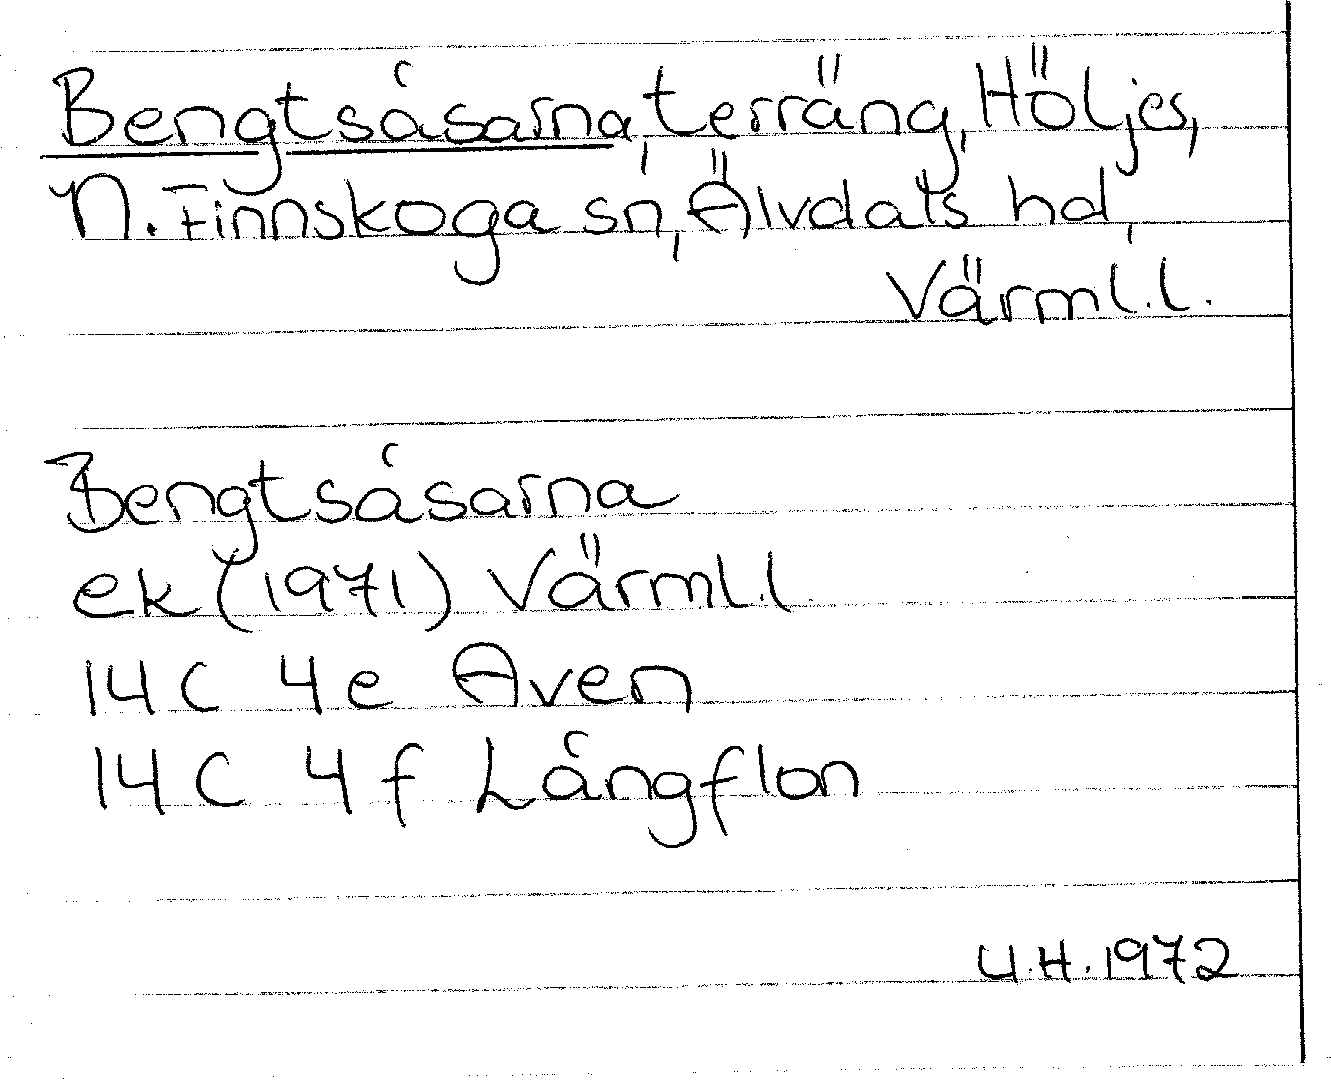 Bengtsåsarna, terräng, Höljes,
N. Finnskoga sn, Älvdals hd,
Värml.l.
Bengtsåsarna
ek (1971) Värml.l
14 C 4 e Aven
14 C 4 f Långflon
U.H. 1972